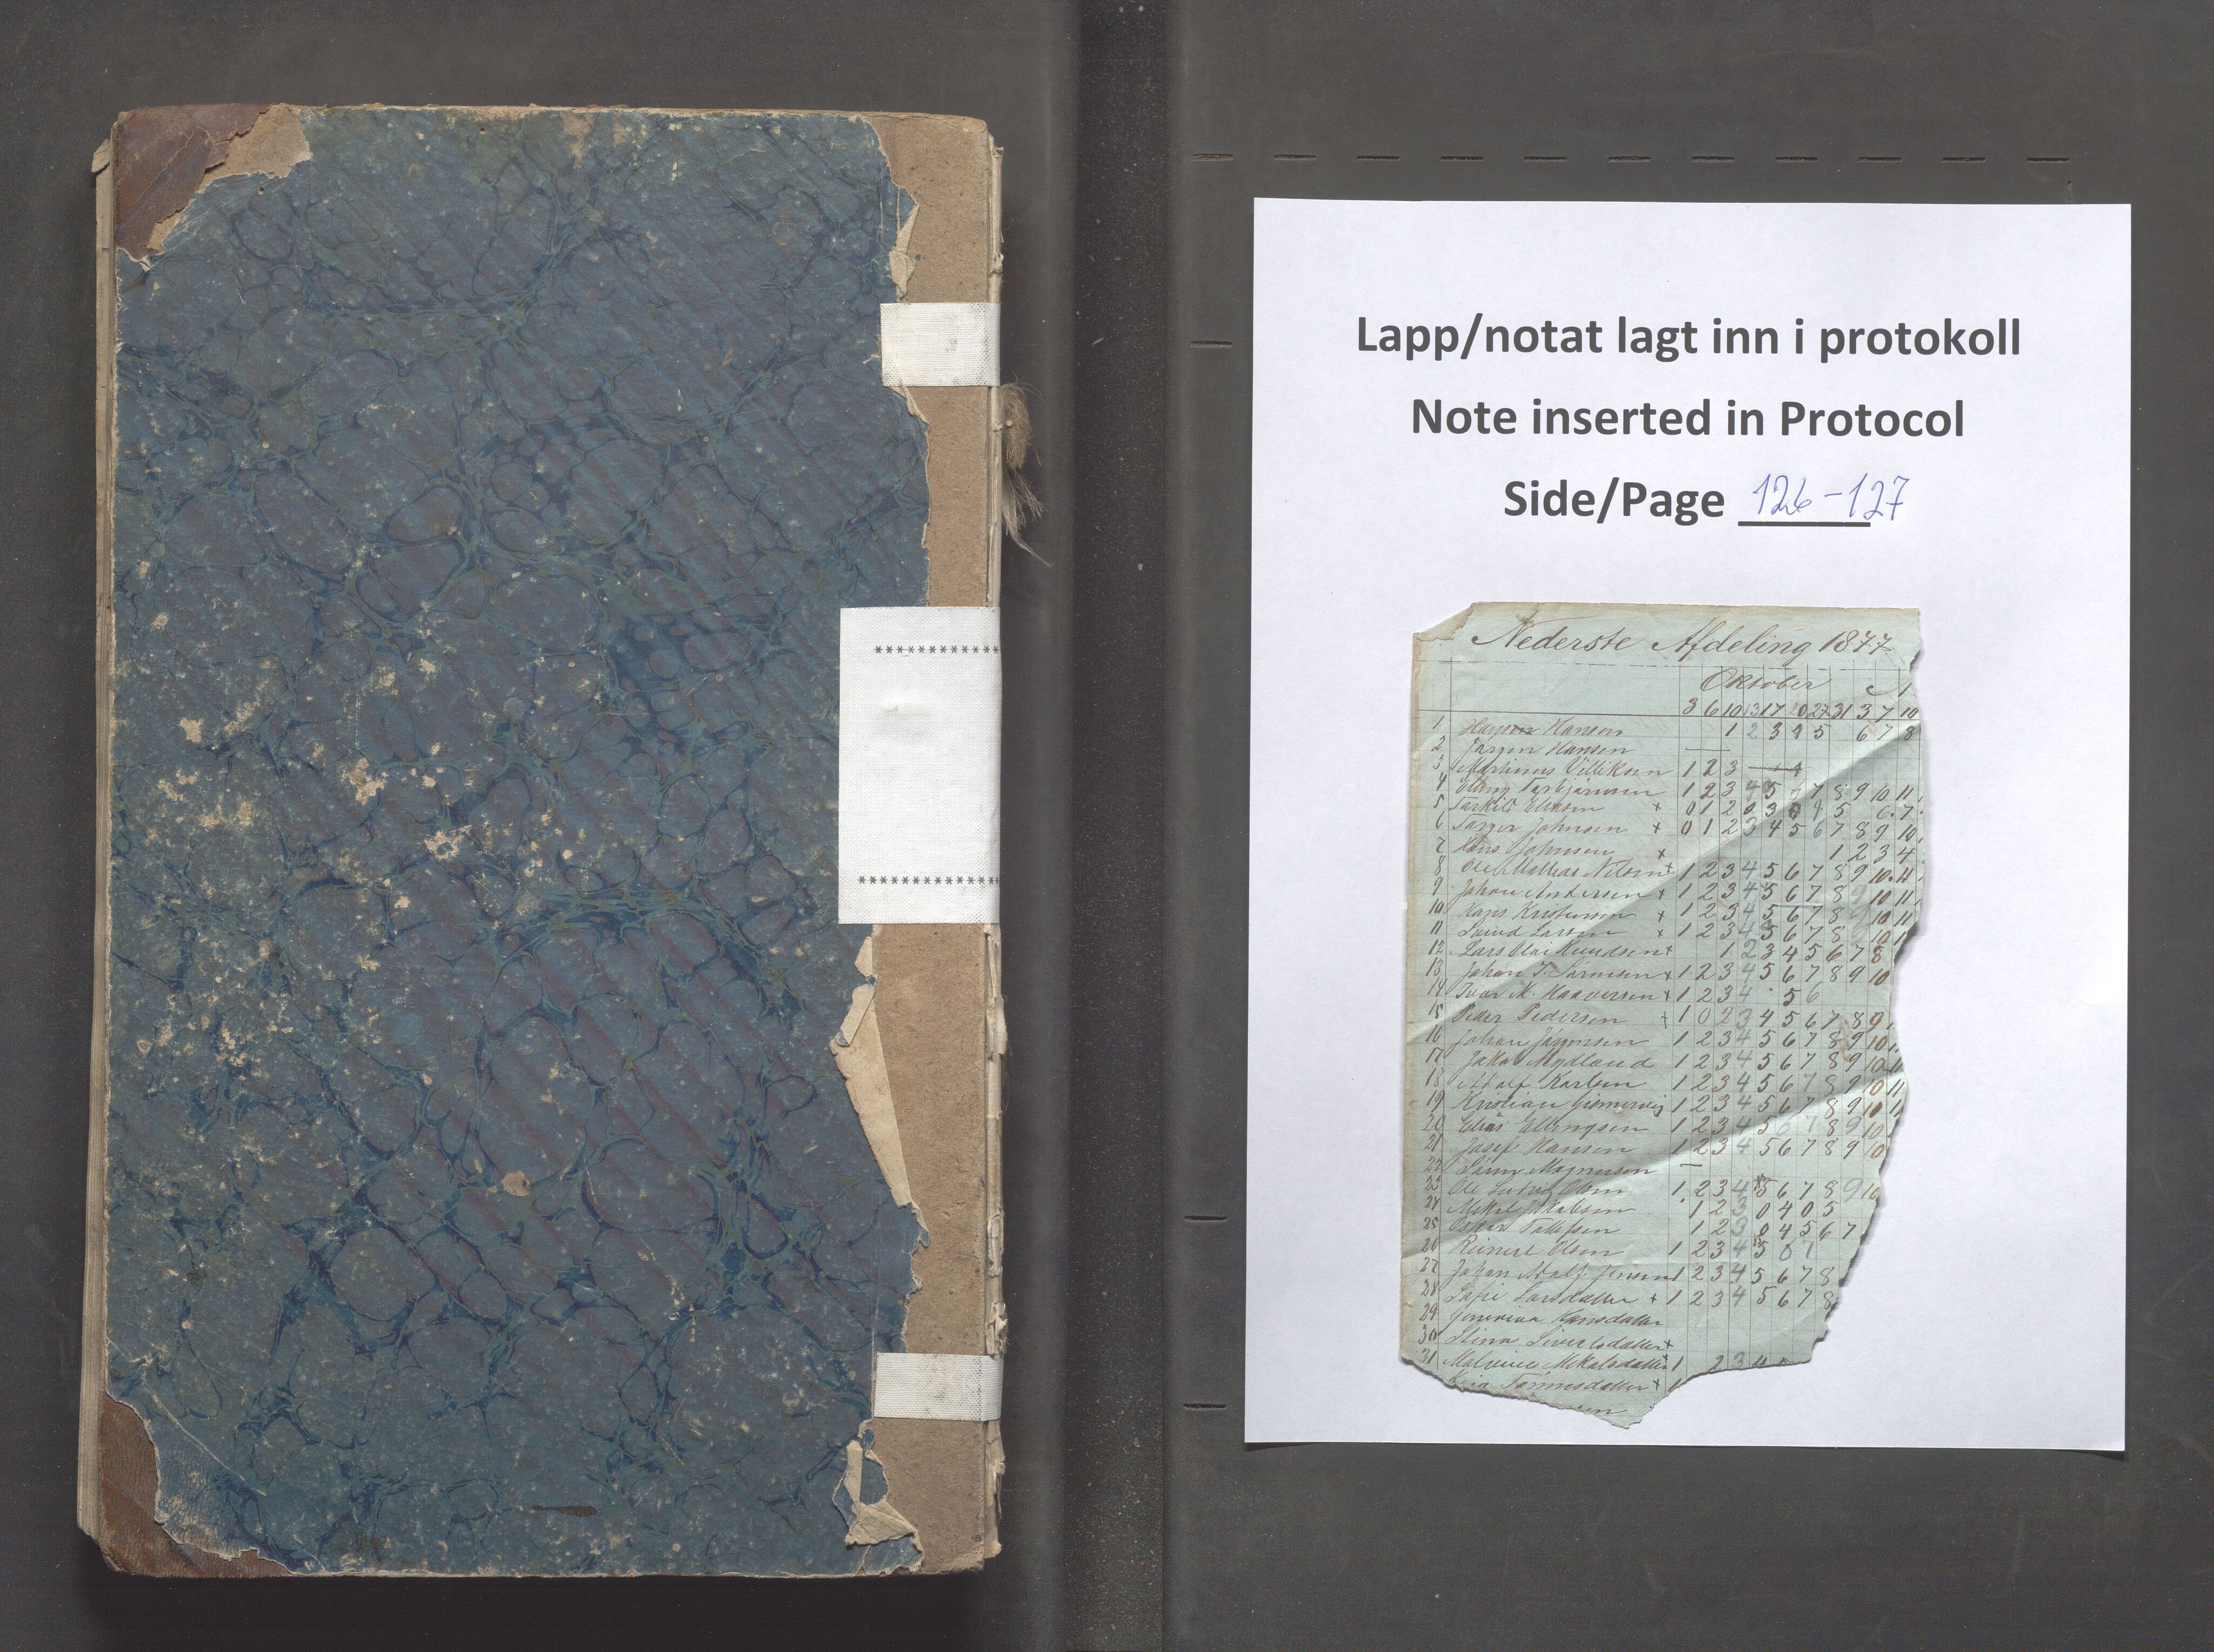 ********** **
********** **
Lapp/notat lagt inn i protokoll
Note inserted in Protocol
Side/Page 126-127
Nederste Afdeling 1877
Oktober
3 6 10 13 17 20 27 31 3 7 10
1 Hansen 1 2 3 4 5 6 7 8
2 Jørgen Hansen
3 Martinus Villiksen 1 2 3 4
4 1 2 3 4 5 7 8 9 10 11
5 Tarkild Eliasen x 0 1 2 0 3 0 4 5 6 7
6 Tarjer Johnsen x 0 1 2 3 4 5 6 7 8 9 10
7 Hans Johnsen x 1 2 3 4
8 Ole Mathias Nilsen x 1 2 3 4 5 6 7 8 9 10 11
9 Johan Andersen x 1 2 3 4 5 6 7 8 9 10 11
10 Hans Kristensen x 1 2 3 4 5 6 7 8 9 10 11
11 Svend Larsen x 1 2 3 4 5 6 7 8 10
12 Lars Olai Knudsen x 1 2 3 4 5 6 7 8
13 Johan T. Sørensen x 1 2 3 4 5 6 7 8 9 10
14 Ivar M. Haaversen x 1 2 3 4 5 6
15 Peder Pedersen x 1 0 2 3 4 5 6 7 8 9
16 Johan Jørgensen 1 2 3 4 5 6 7 8 9 10
17 Jakob Mydland 1 2 3 4 5 6 7 8 9 10 11
18 Adolf Karlsen 1 2 3 4 5 6 7 8 9 10 11
19 Kristian 1 2 3 4 5 6 7 8 9 10
20 Elias Ellingsen 1 2 3 4 5 6 7 8 9 10
21 Josef Hansen 1 2 3 4 5 6 7 8 9 10
22 Magnusen
23 Ole Ludvig Olsen 1 2 3 4 5 6 7 8 9 10
24 Mikal Jakobsen 1 2 3 0 4 0 5
25 Oskar Tallefsen 1 2 3 0 4 5 6 7
26 Reinert Olsen 1 2 3 4 5 6 7
27 Johan Adolf Jensen 1 2 3 4 5 6 7 8
28 Sofie Larsdatter x 1 2 3 4 5 6 7 8
29 Hansdatter
30 Stina Sivertsdatter x
31 Malvine Mikalsdatter 1 2 3 4 5
Tønnesdatter x 1